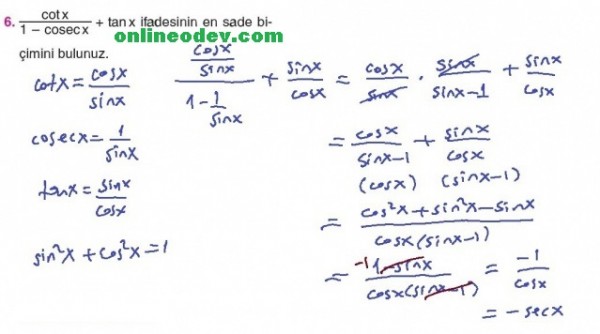 6. cotx / (1 – cosecx) + tanx ifadesinin en sade bi-
onlineodev.com
çimini bulunuz.
cotx = cosx / sinx
cosecx = 1 / sinx
tanx = sinx / cosx
sin²x + cos²x = 1
(cosx / sinx) / (1 - 1 / sinx) + sinx / cosx = cosx / sinx · sinx / (sinx-1) + sinx / cosx
= cosx / (sinx-1) + sinx / cosx
(cosx) (sinx-1)
= (cos²x + sin²x - sinx) / (cosx(sinx-1))
= -1 1-sinx / (cosx(sinx-1)) = -1 / cosx
= -secx